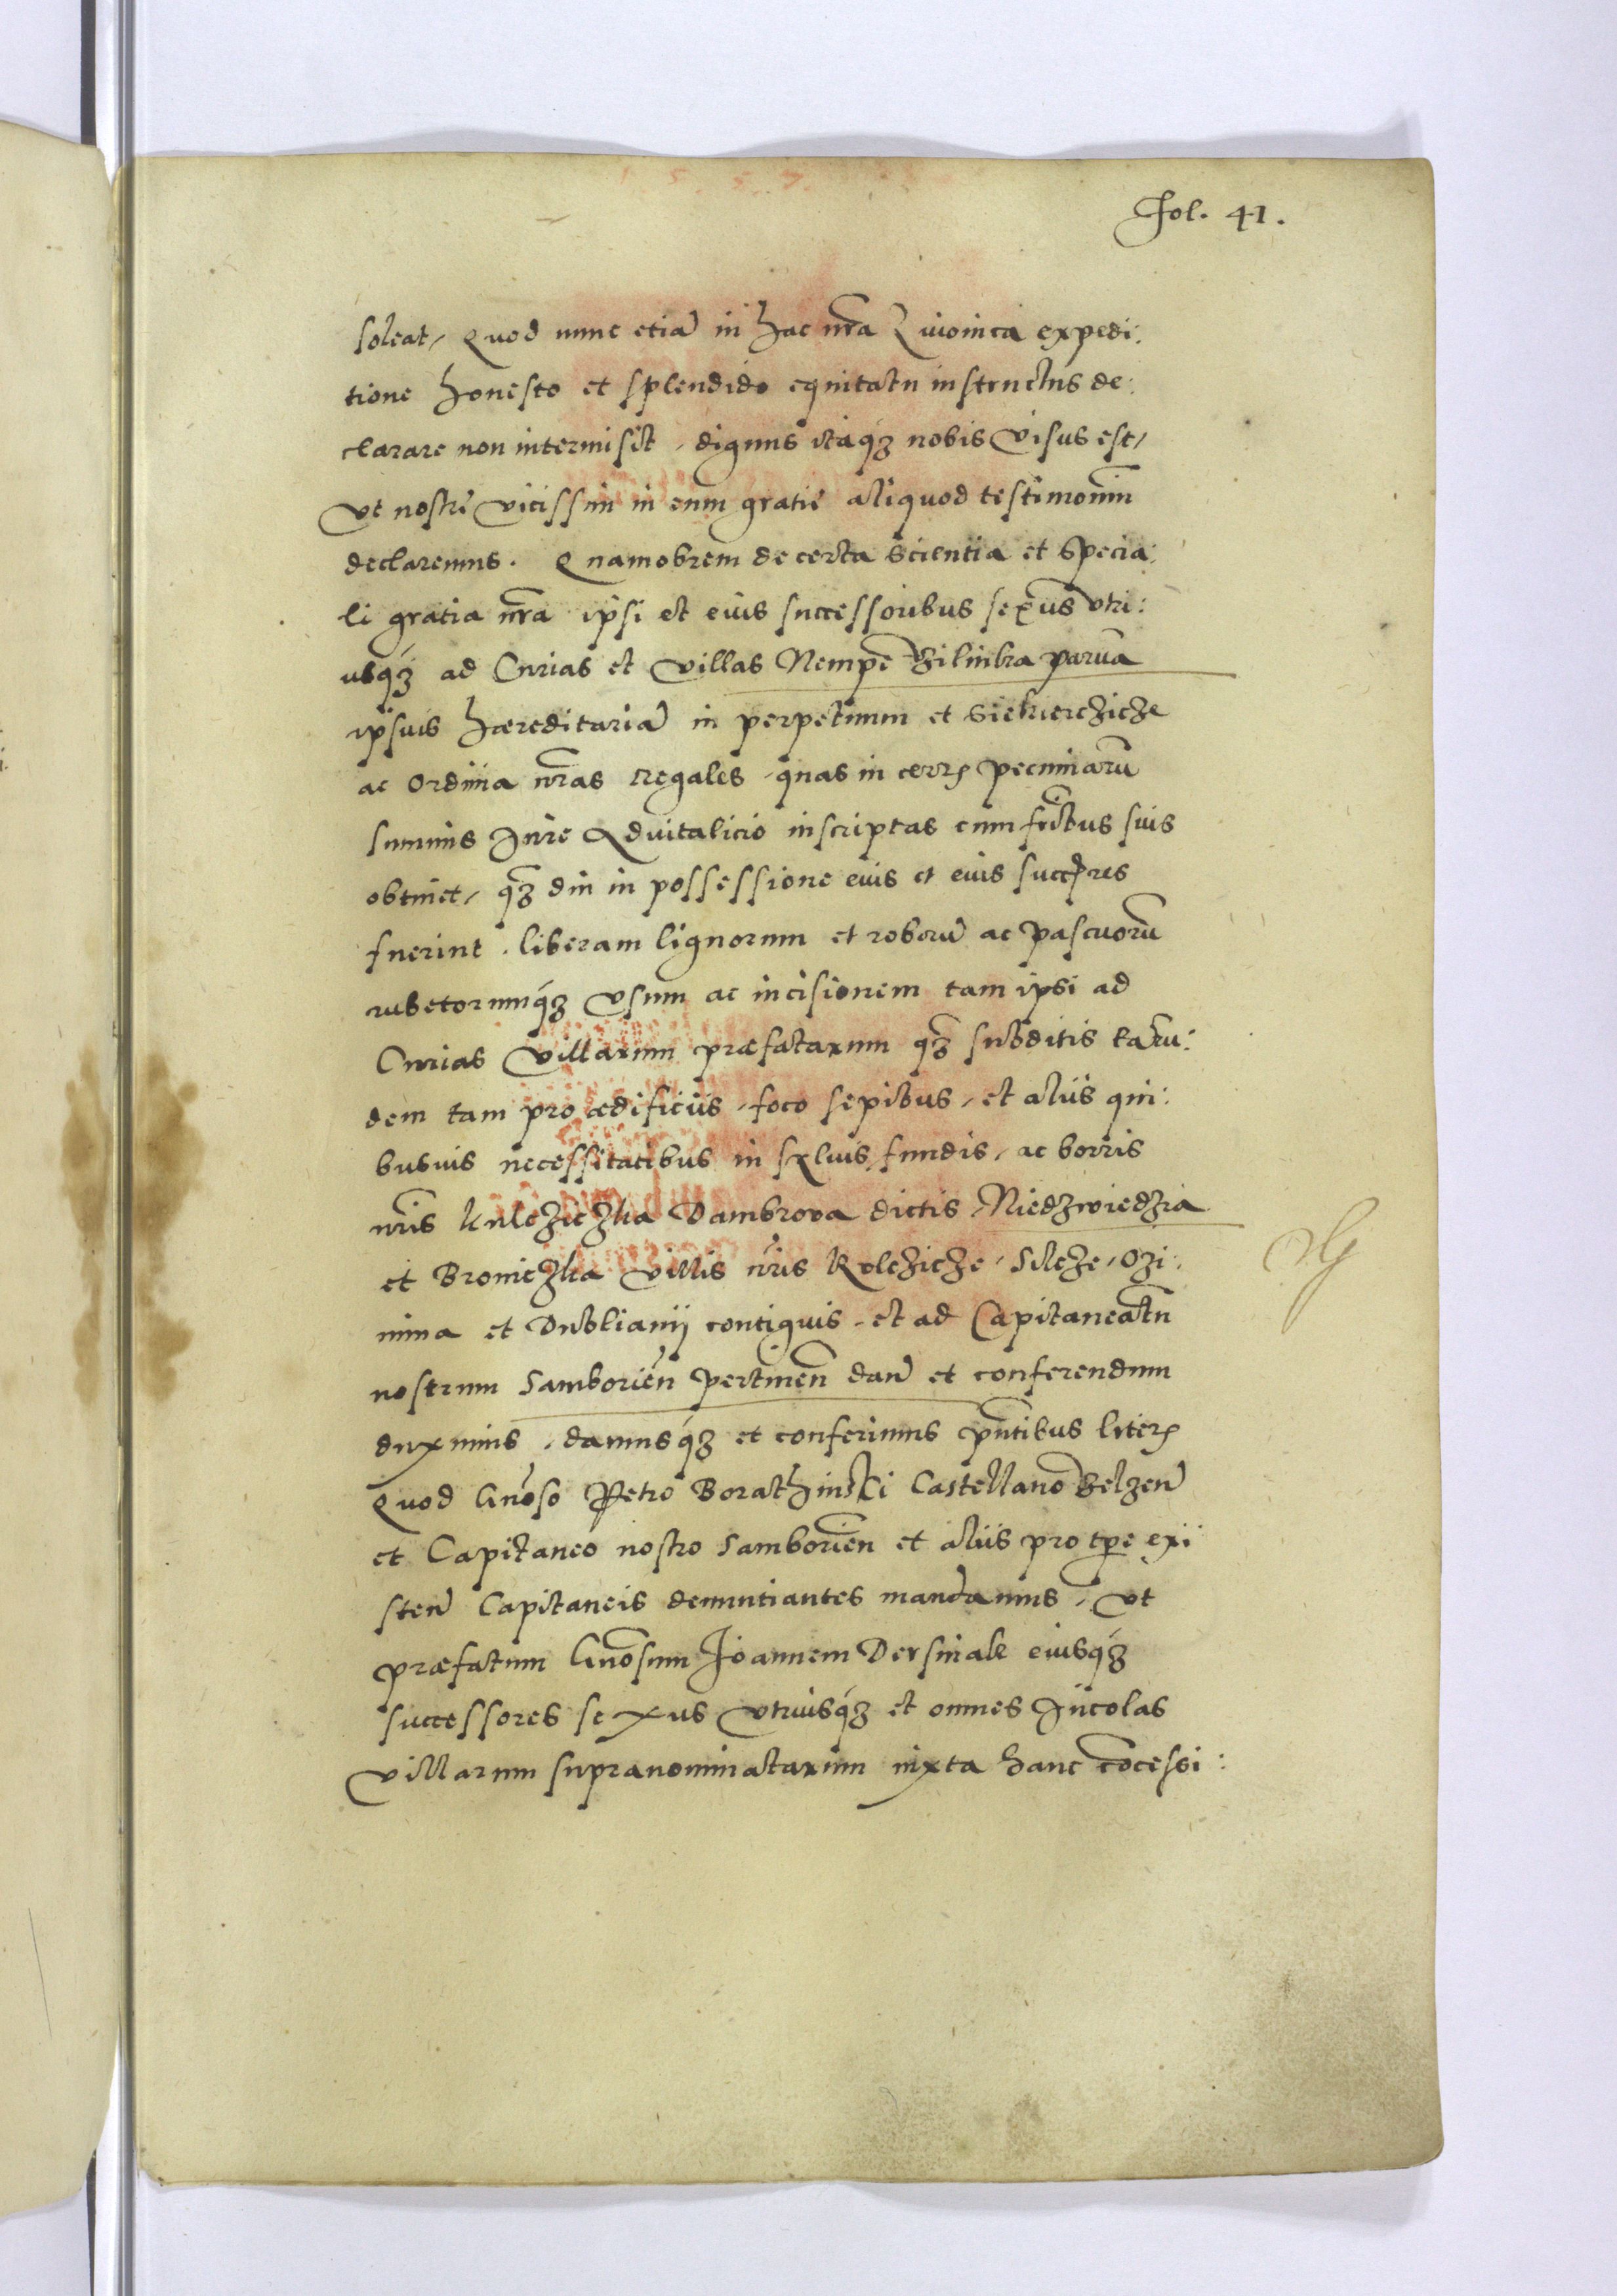 1 5 5 7
Fol. 41.
soleat, Quod nunc etiā in hac nr̄a Liuonica expedi:
tione honesto et splendido equitatu instructus de:
clarare non intermisit, dignus itaqȝ nobis visus est,
vt nostrę vicissim in eum gratię aliquod testimoniū
declaremus. Quamobrem de certa scientia et specia:
li gratia nr̄a ipsi et eius successoribus sexus vtri:
usqȝ ad Curias et villas Nempe Bilinka paruā
ipsius hæreditariā in perpetuum et Siekierczicze
ac Ordinia nr̄as regales, quas in certꝭ pecuniarū
summis Jure Aduitalicio inscriptas cum frībus suis
obtinet, qȝ diu in possessione eius et eius succr̄es
fuerint, liberam lignorum et roborū ac pascuorū
rubetorumqȝ vsum ac incisionem tam ipsi ad
Curias villarum præfatarum qȝ subditis earū:
dem tam pro ædificiis, foco sepibus, et aliis qui:
busuis necessitatibus in syluis, fundis, ac borris
nr̄is Kulcziczka Dambrowa dictis Niedzwiedzia
et Broniczka villis nr̄is Kolczicze, Silcze, Ozi:
mina et Dublianij contiguis, et ad Capitaneatū
nostrum Samborieñ pertineñ dañ et conferendum
duximus, damusqȝ et conferimus pn̄tibus literꝭ
Quod Gn̄oso Petro Borathinski Castellano Belzeñ
et Capitaneo nostro Samborieñ et aliis pro tp̄e exi
steñ Capitaneis denuntiantes mandamus, vt
præfatum Gn̄osum Joannem Dersniak eiusqȝ
successores sexus vtriusqȝ et omnes Jncolas
villarum supranominatarum iuxta hanc cōcessi: